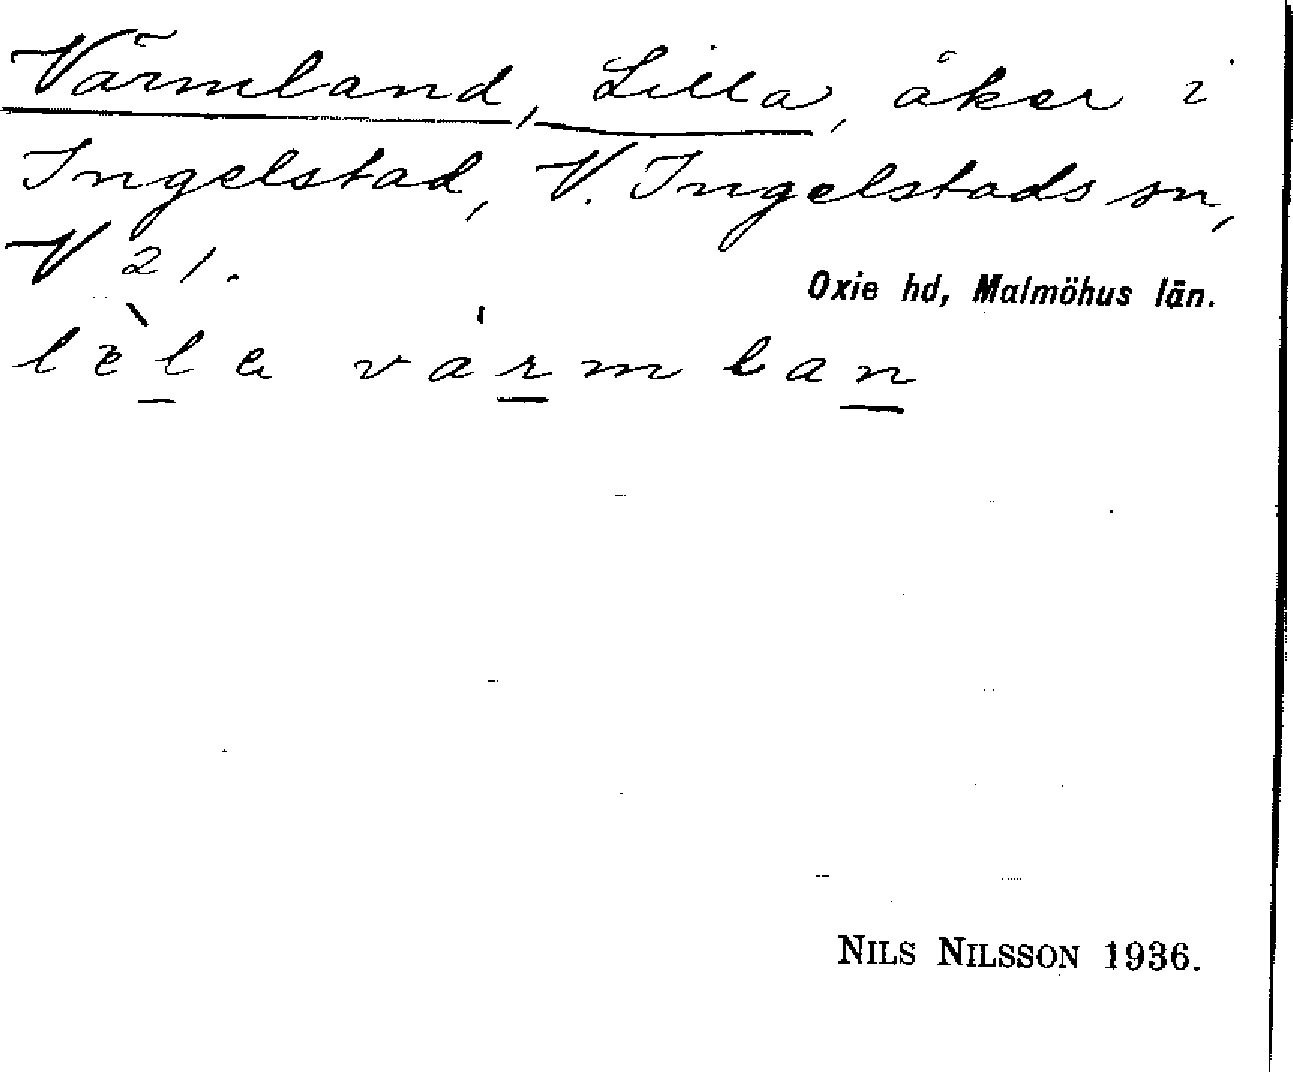 Värmland, Lilla, åker i
Ingelstad, V. Ingelstads sn,
V 21.
Oxie hd, Malmöhus län.
lèla vármlan
NILS NILSSON 1936.